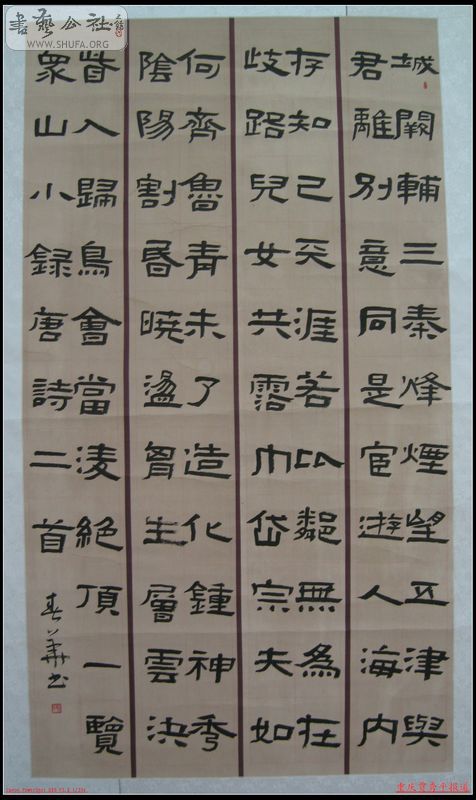 書藝公社
WWW.SHUFA.ORG
城闕輔三秦烽煙望五津與
君離別意同是宦遊人海內
存知己天涯若比鄰無為在
歧路兒女共霑巾岱宗夫如
何齊魯青未了造化鍾神秀
陰陽割昏曉盪胸生層雲決
眥入歸鳥會當凌絕頂一覽
眾山小錄唐詩二首
春華書
Canon PowerShot
重庆贾秀平报道